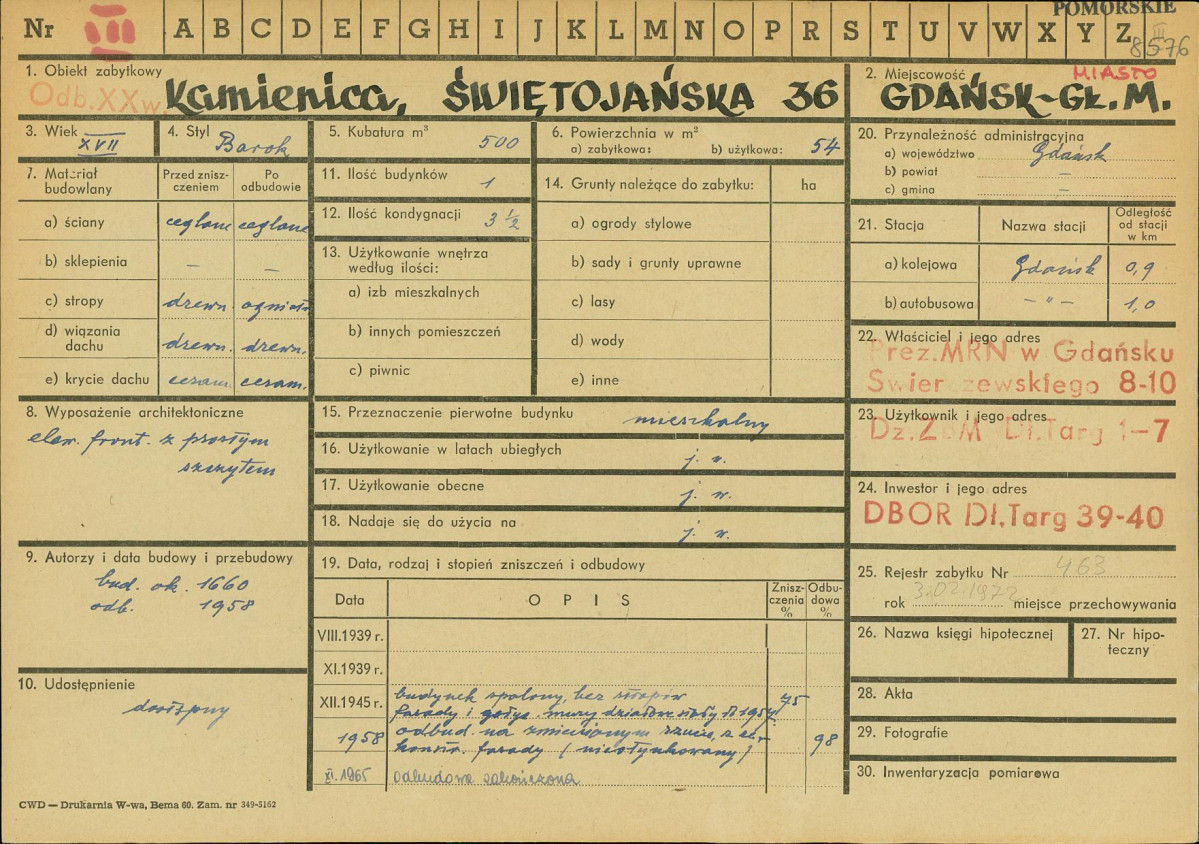 POMORSKIE
Nr VIII A B C D E F G H I J K L M N O P R S T U V W X Y Z
8576
1. Obiekt zabytkowy
Odb.XXw
Kamienica, ŚWIĘTOJAŃSKA 36
2. Miejscowość
MIASTO
GDAŃSK-GŁ.M.
3. Wiek
XVII
4. Styl
Barok
5. Kubatura m³
500
6. Powierzchnia w m²
a) zabytkowa: b) użytkowa: 54
20. Przynależność administracyjna
a) województwo Gdańsk
b) powiat –
c) gmina –
7. Materiał budowlany
Przed znisz-
czeniem
Po
odbudowie
a) ściany ceglane ceglane
b) sklepienia – –
c) stropy drzewn. ogniotr
d) wiązania
dachu drzewn. drzewn.
e) krycie dachu ceram. ceram.
11. Ilość budynków 1
12. Ilość kondygnacji 3 ½
13. Użytkowanie wnętrza
według ilości:
a) izb mieszkalnych
b) innych pomieszczeń
c) piwnic
14. Grunty należące do zabytku: ha
a) ogrody stylowe
b) sady i grunty uprawne
c) lasy
d) wody
e) inne
21. Stacja Nazwa stacji
Odległość
od stacji
w km
a) kolejowa Gdańsk 0,9
b) autobusowa – „ – 1,0
22. Właściciel i jego adres
Prez.MRN w Gdańsku
Świer zewskiego 8-10
8. Wyposażenie architektoniczne
elew. front. z prostym
szczytem
15. Przeznaczenie pierwotne budynku mieszkalny
16. Użytkowanie w latach ubiegłych j. w.
17. Użytkowanie obecne j. w.
18. Nadaje się do użycia na j. w.
23. Użytkownik i jego adres
Dz.ZBM Dł.Targ 1-7
24. Inwestor i jego adres
DBOR Dł.Targ 39-40
9. Autorzy i data budowy i przebudowy
bud. ok. 1660
odb. 1958
19. Data, rodzaj i stopień zniszczeń i odbudowy
Data OPIS
Znisz-
czenia
%
Odbu-
dowa
%
VIII.1939 r.
XI.1939 r.
XII.1945 r. budynek spalony, bez stropów 75
fasady i gołyc. mury działowe stały do 1954
1958 odbud. na zmienionym rzucie, z 98
konstr. fasady (nieotynkowany)
XI.1965 odbudowa zakończona
10. Udostępnienie
dostępny
25. Rejestr zabytku Nr 463
rok 3.02.1972 miejsce przechowywania
26. Nazwa księgi hipotecznej
27. Nr hipo-
teczny
28. Akta
29. Fotografie
30. Inwentaryzacja pomiarowa
CWD — Drukarnia W-wa, Bema 60. Zam. nr 349-5162